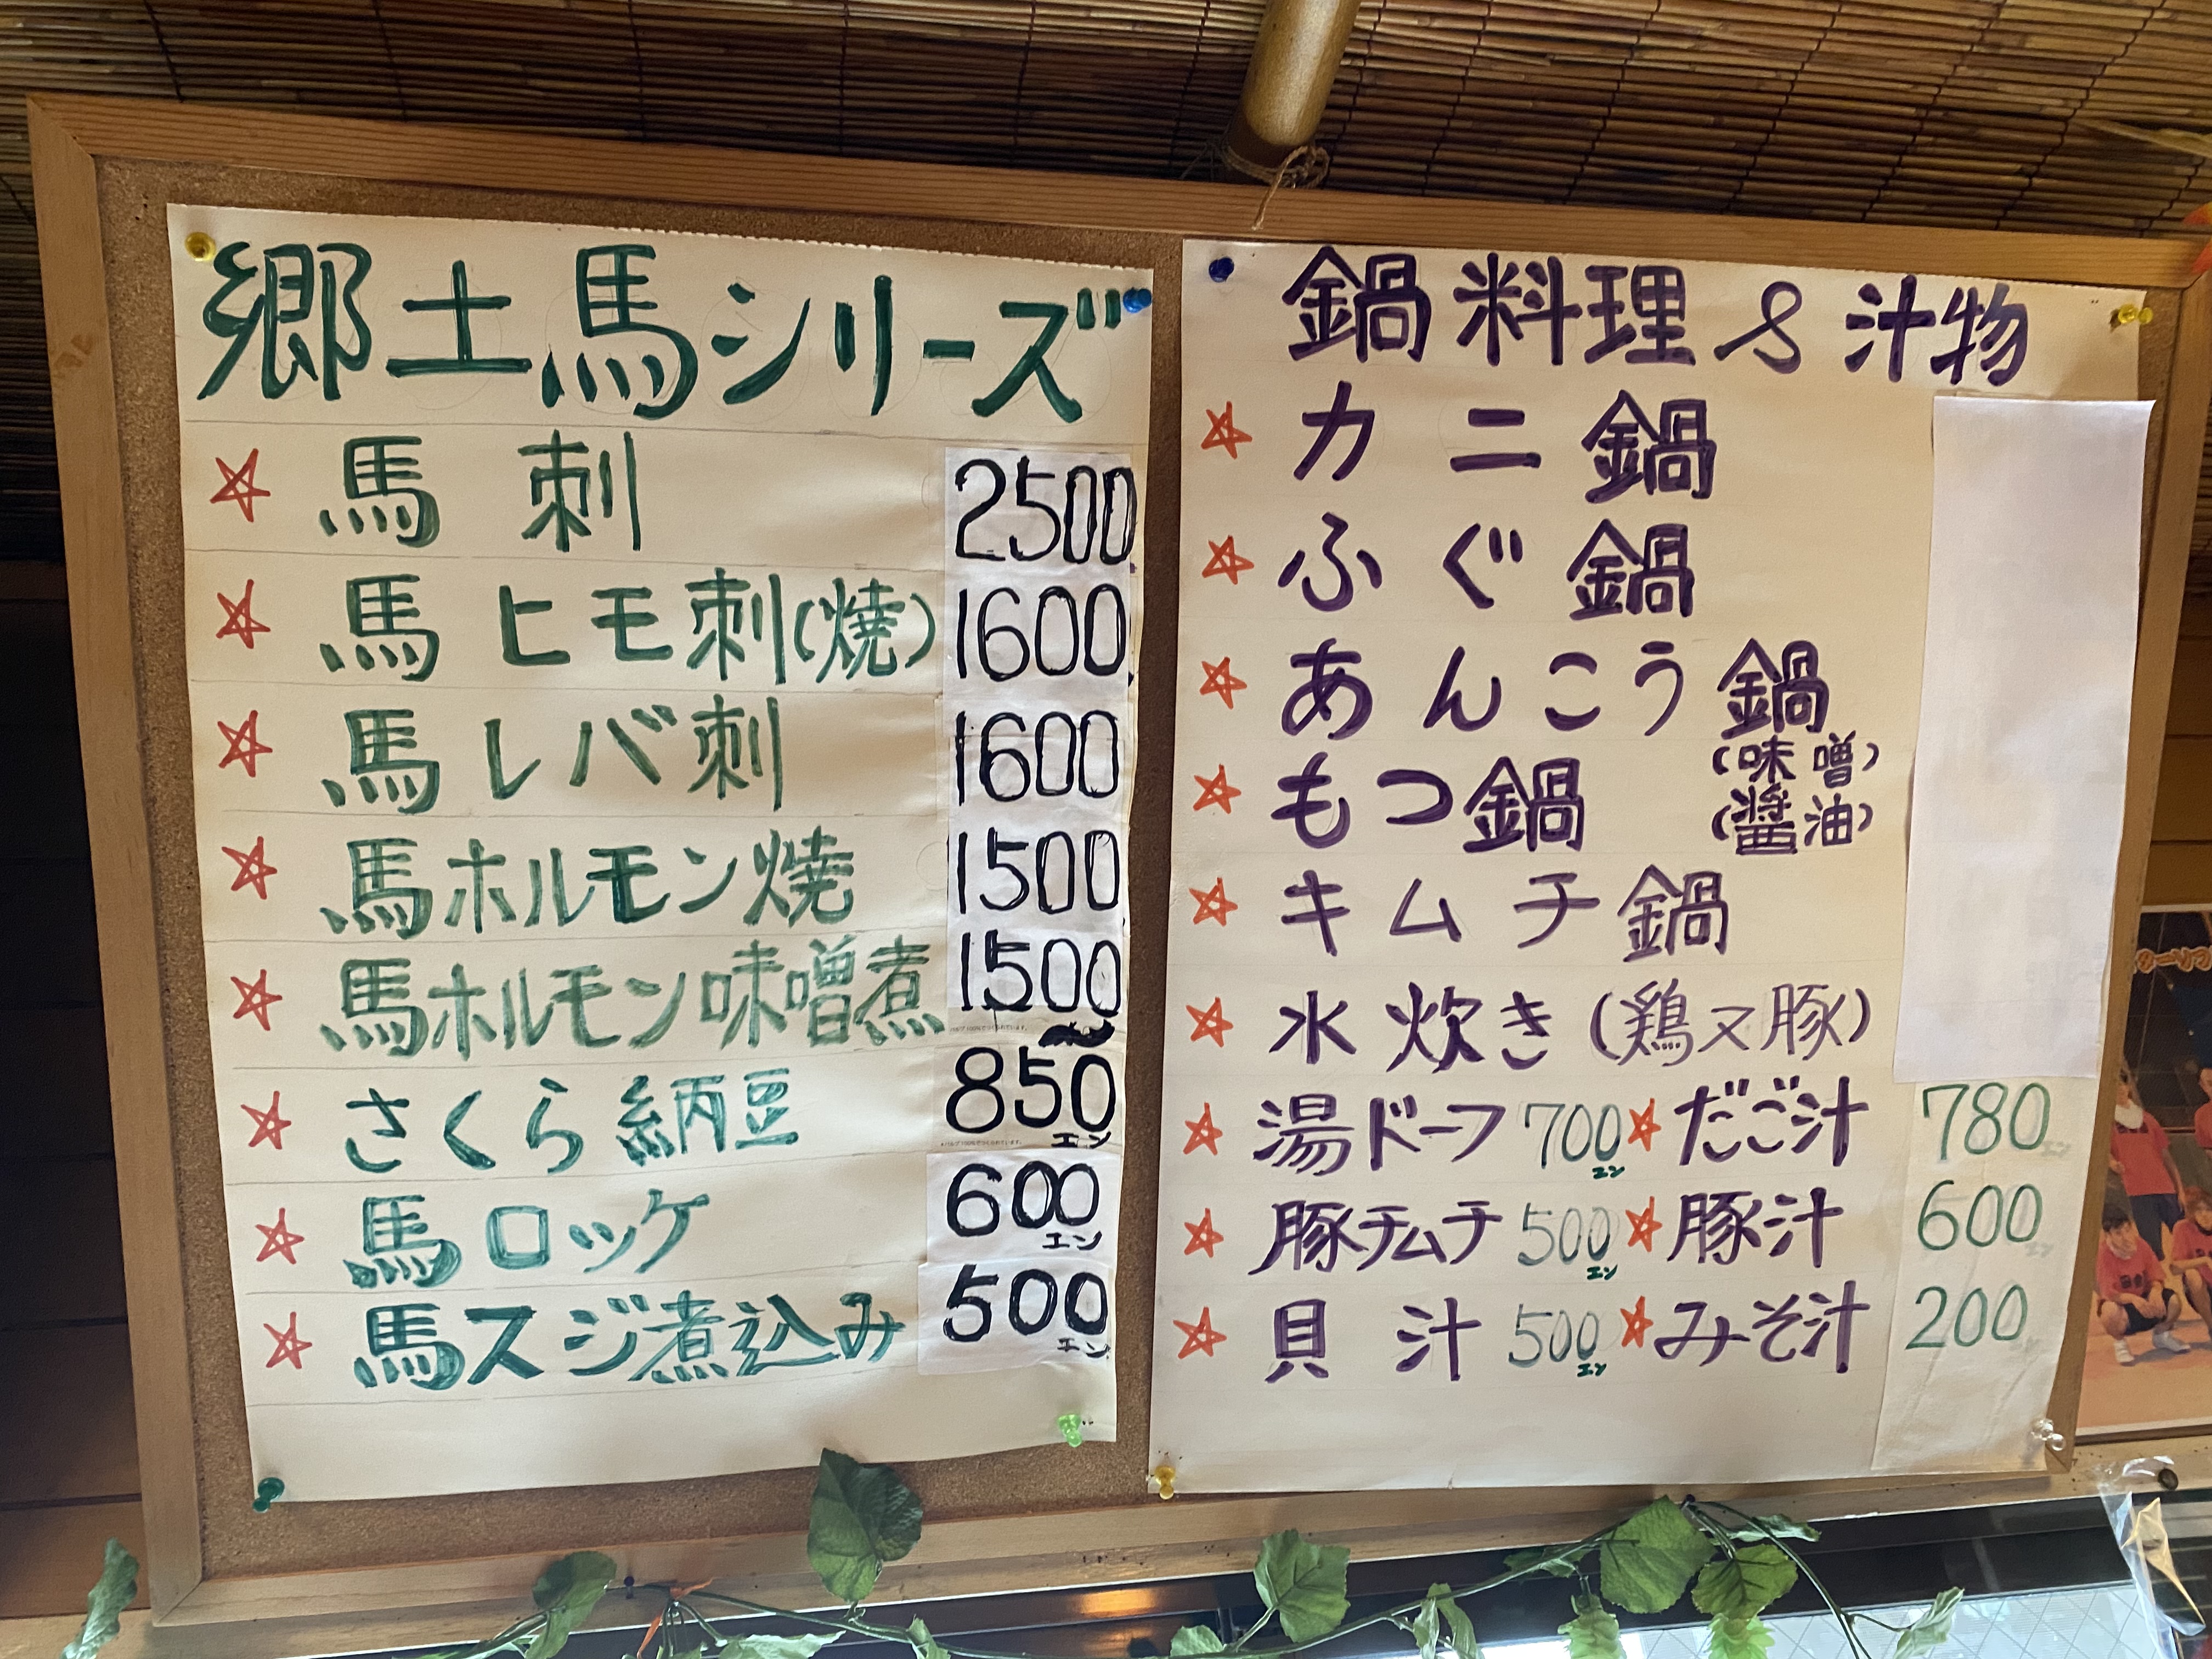 郷土馬シリーズ
☆ 馬刺 2500
☆ 馬ヒモ刺(焼) 1600
☆ 馬レバ刺 1600
☆ 馬ホルモン焼 1500
☆ 馬ホルモン味噌煮 1500
☆ さくら納豆 850エン
☆ 馬ロッケ 600エン
☆ 馬スジ煮込み 500エン
鍋料理 & 汁物
☆ カニ鍋
☆ ふぐ鍋
☆ あんこう鍋
☆ もつ鍋 (味噌)
(醤油)
☆ キムチ鍋
☆ 水炊き (鶏又豚)
☆ 湯ドーフ 700エン ☆ だご汁 780エン
☆ 豚チムチ 500エン ☆ 豚汁 600エン
☆ 貝汁 500エン ☆ みそ汁 200